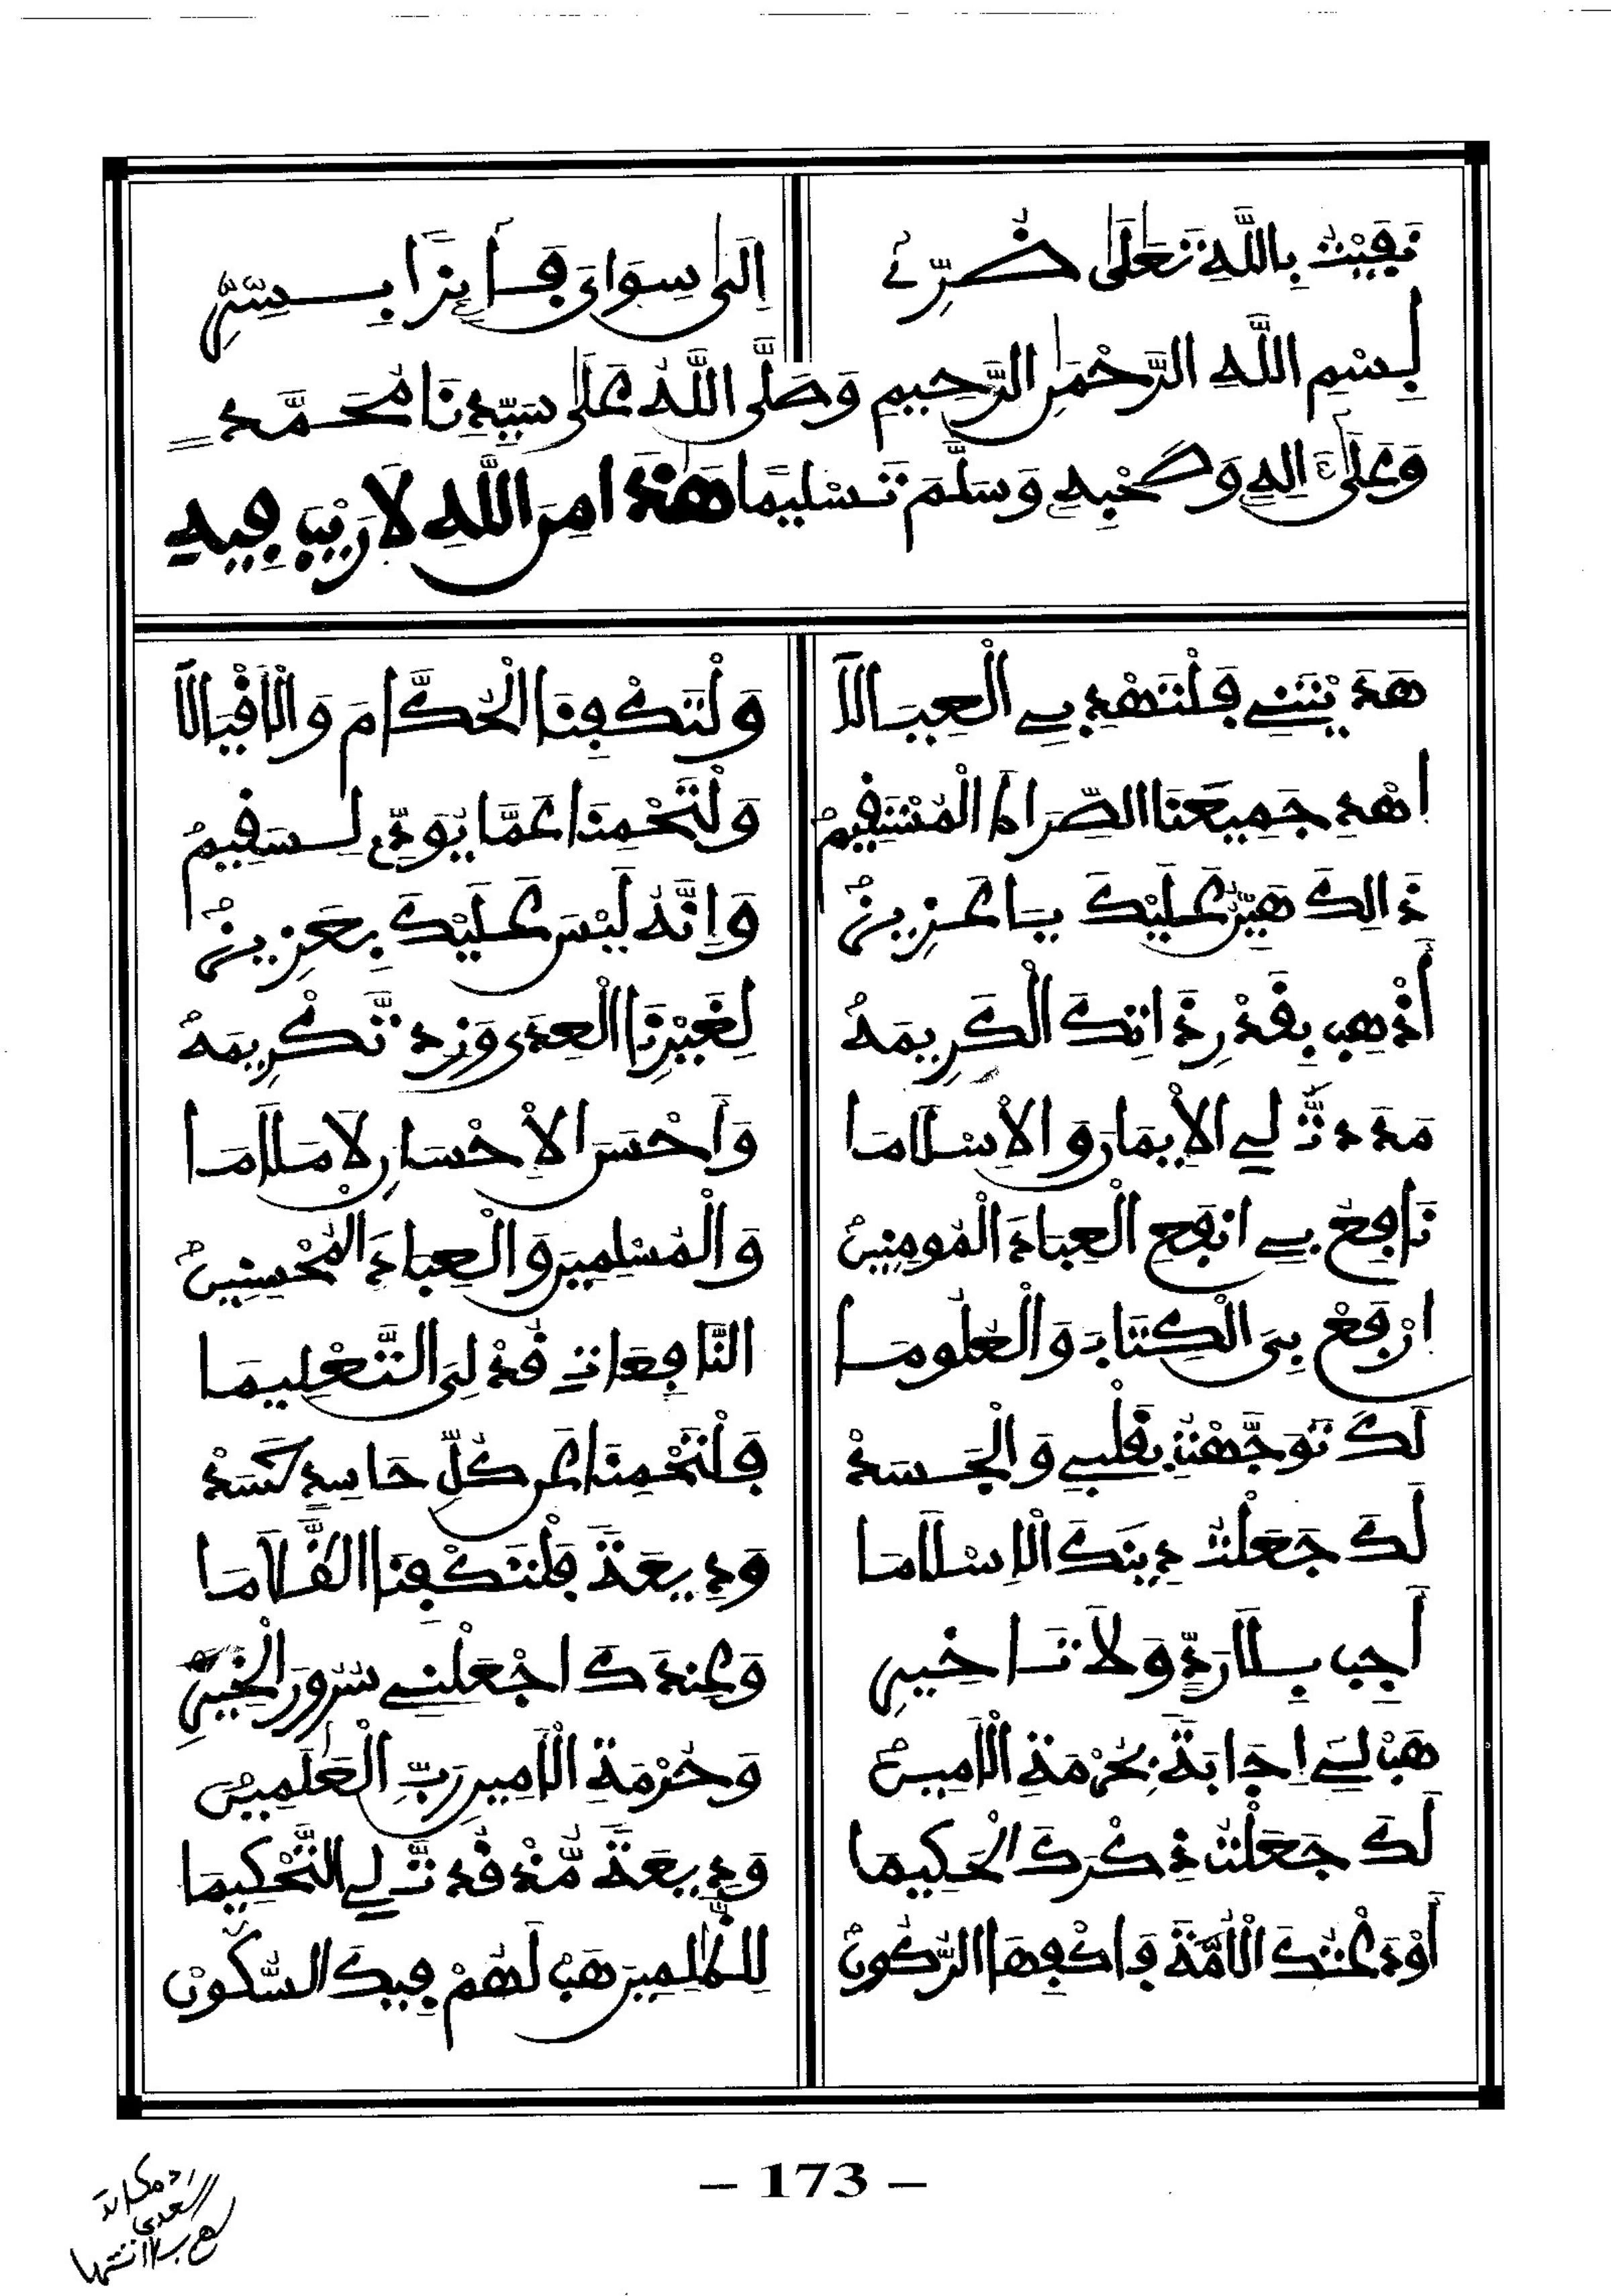 نَفَيْتُ بِاللَّهِ تَعَلَى ضُرِّے إِلَى سِوَاىَ فَآئِزًا بِسِرِّ
بِسْمِ اللَّهِ الرَّحْمَٰنِ الرَّحِيمِ وَصَلَّى اللَّهُ عَلَى سَيِّدِنَا مُحَمَّدٍ
وَعَلَىٰ ءَالِهِ وَصَحْبِهِ وَسَلَّمَ تَسْلِيمًا هَٰذَا مِنَ اللَّهِ لَا رَيْبَ فِيهِ
هَدَيْتَنِے فَلْتَهْدِ بِےَ الْعِيَالَا وَلْتَكْفِنَا الْحُكَّامَ وَالْأَقْيَالَا
اهْدِ جَمِيعَنَا الصِّرَاطَ الْمُسْتَقِيمْ وَلْتَحْمِنَا عَمَّا يُوَدِّے لِسَقِيمْ
ذَالِكَ هَيِّنٌ عَلَيْكَ يَا عَزِيزْ وَإِنَّهُ لَيْسَ عَلَيْكَ بِعَزِيزْ
أَذْهِبْ بِقَدْرِ ذَاتِكَ الْكَرِيمَهْ لِغَيْرِنَا الْعِدَى وَزِدْ تَكْرِيمَهْ
مَدَدتَّ لِے الْإِيمَانَ وَالْإِسْلَامَا وَأَحْسَنَ الْإِحْسَانِ لَا مَلَامَا
نَافِعُ بِے انْفَعِ الْعِبَادَ الْمُومِنِينْ وَالْمُسْلِمِينَ وَالْعِبَادَ الْمُحْسِنِينْ
ارْفَعْ بِيَ الْكِتَابَ وَالْعُلُومَا النَّافِعَاتِ قُدْ لِيَ التَّعْلِيمَا
لَكَ تَوَجَّهْتُ بِقَلْبِے وَالْجَسَدْ فَلْتَحْمِنَا عَن كُلِّ حَاسِدٍ كَسَدْ
لَكَ جَعَلْتُ دِينَكَ الْإِسْلَامَا وَدِيعَةً فَلْتَكْفِنَا الظُّلَّامَا
أَجِبْ بِلَا رَدٍّ وَلَا تَاخِيرِ وَعِندَكَ اجْعَلْنِے سُرُورَ الْخِيَرِ
هَبْ لِےَ إِجَابَةً بِحُرْمَةِ الْأَمِينْ وَحُرْمَةِ الْأَمِينِ رَبِّ الْعَٰلَمِينْ
لَكَ جَعَلْتُ ذِكْرَكَ الْحَكِيمَا وَدِيعَةً مُّذْ قُدتَّ لِے التَّحْكِيمَا
أَوْدَعْتُكَ الْأُمَّةَ فَاكْفِهَا الرُّكُونْ لِلظَّٰلِمِينَ هَبْ لَهُمْ فِيكَ السُّكُونْ
– 173 –